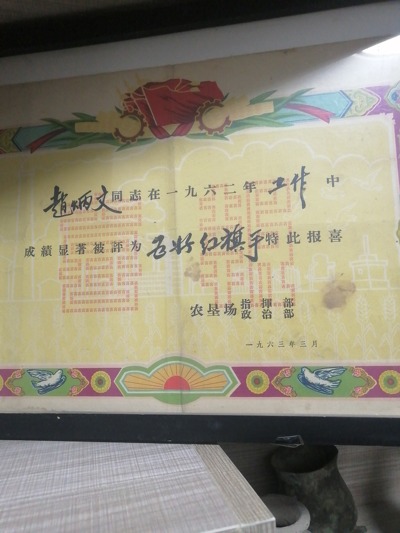 趙炳文同志在一九六二年工作中
成績显著被評为五好红旗手特此报喜
农垦场指揮部
政治部
一九六三年三月
报喜